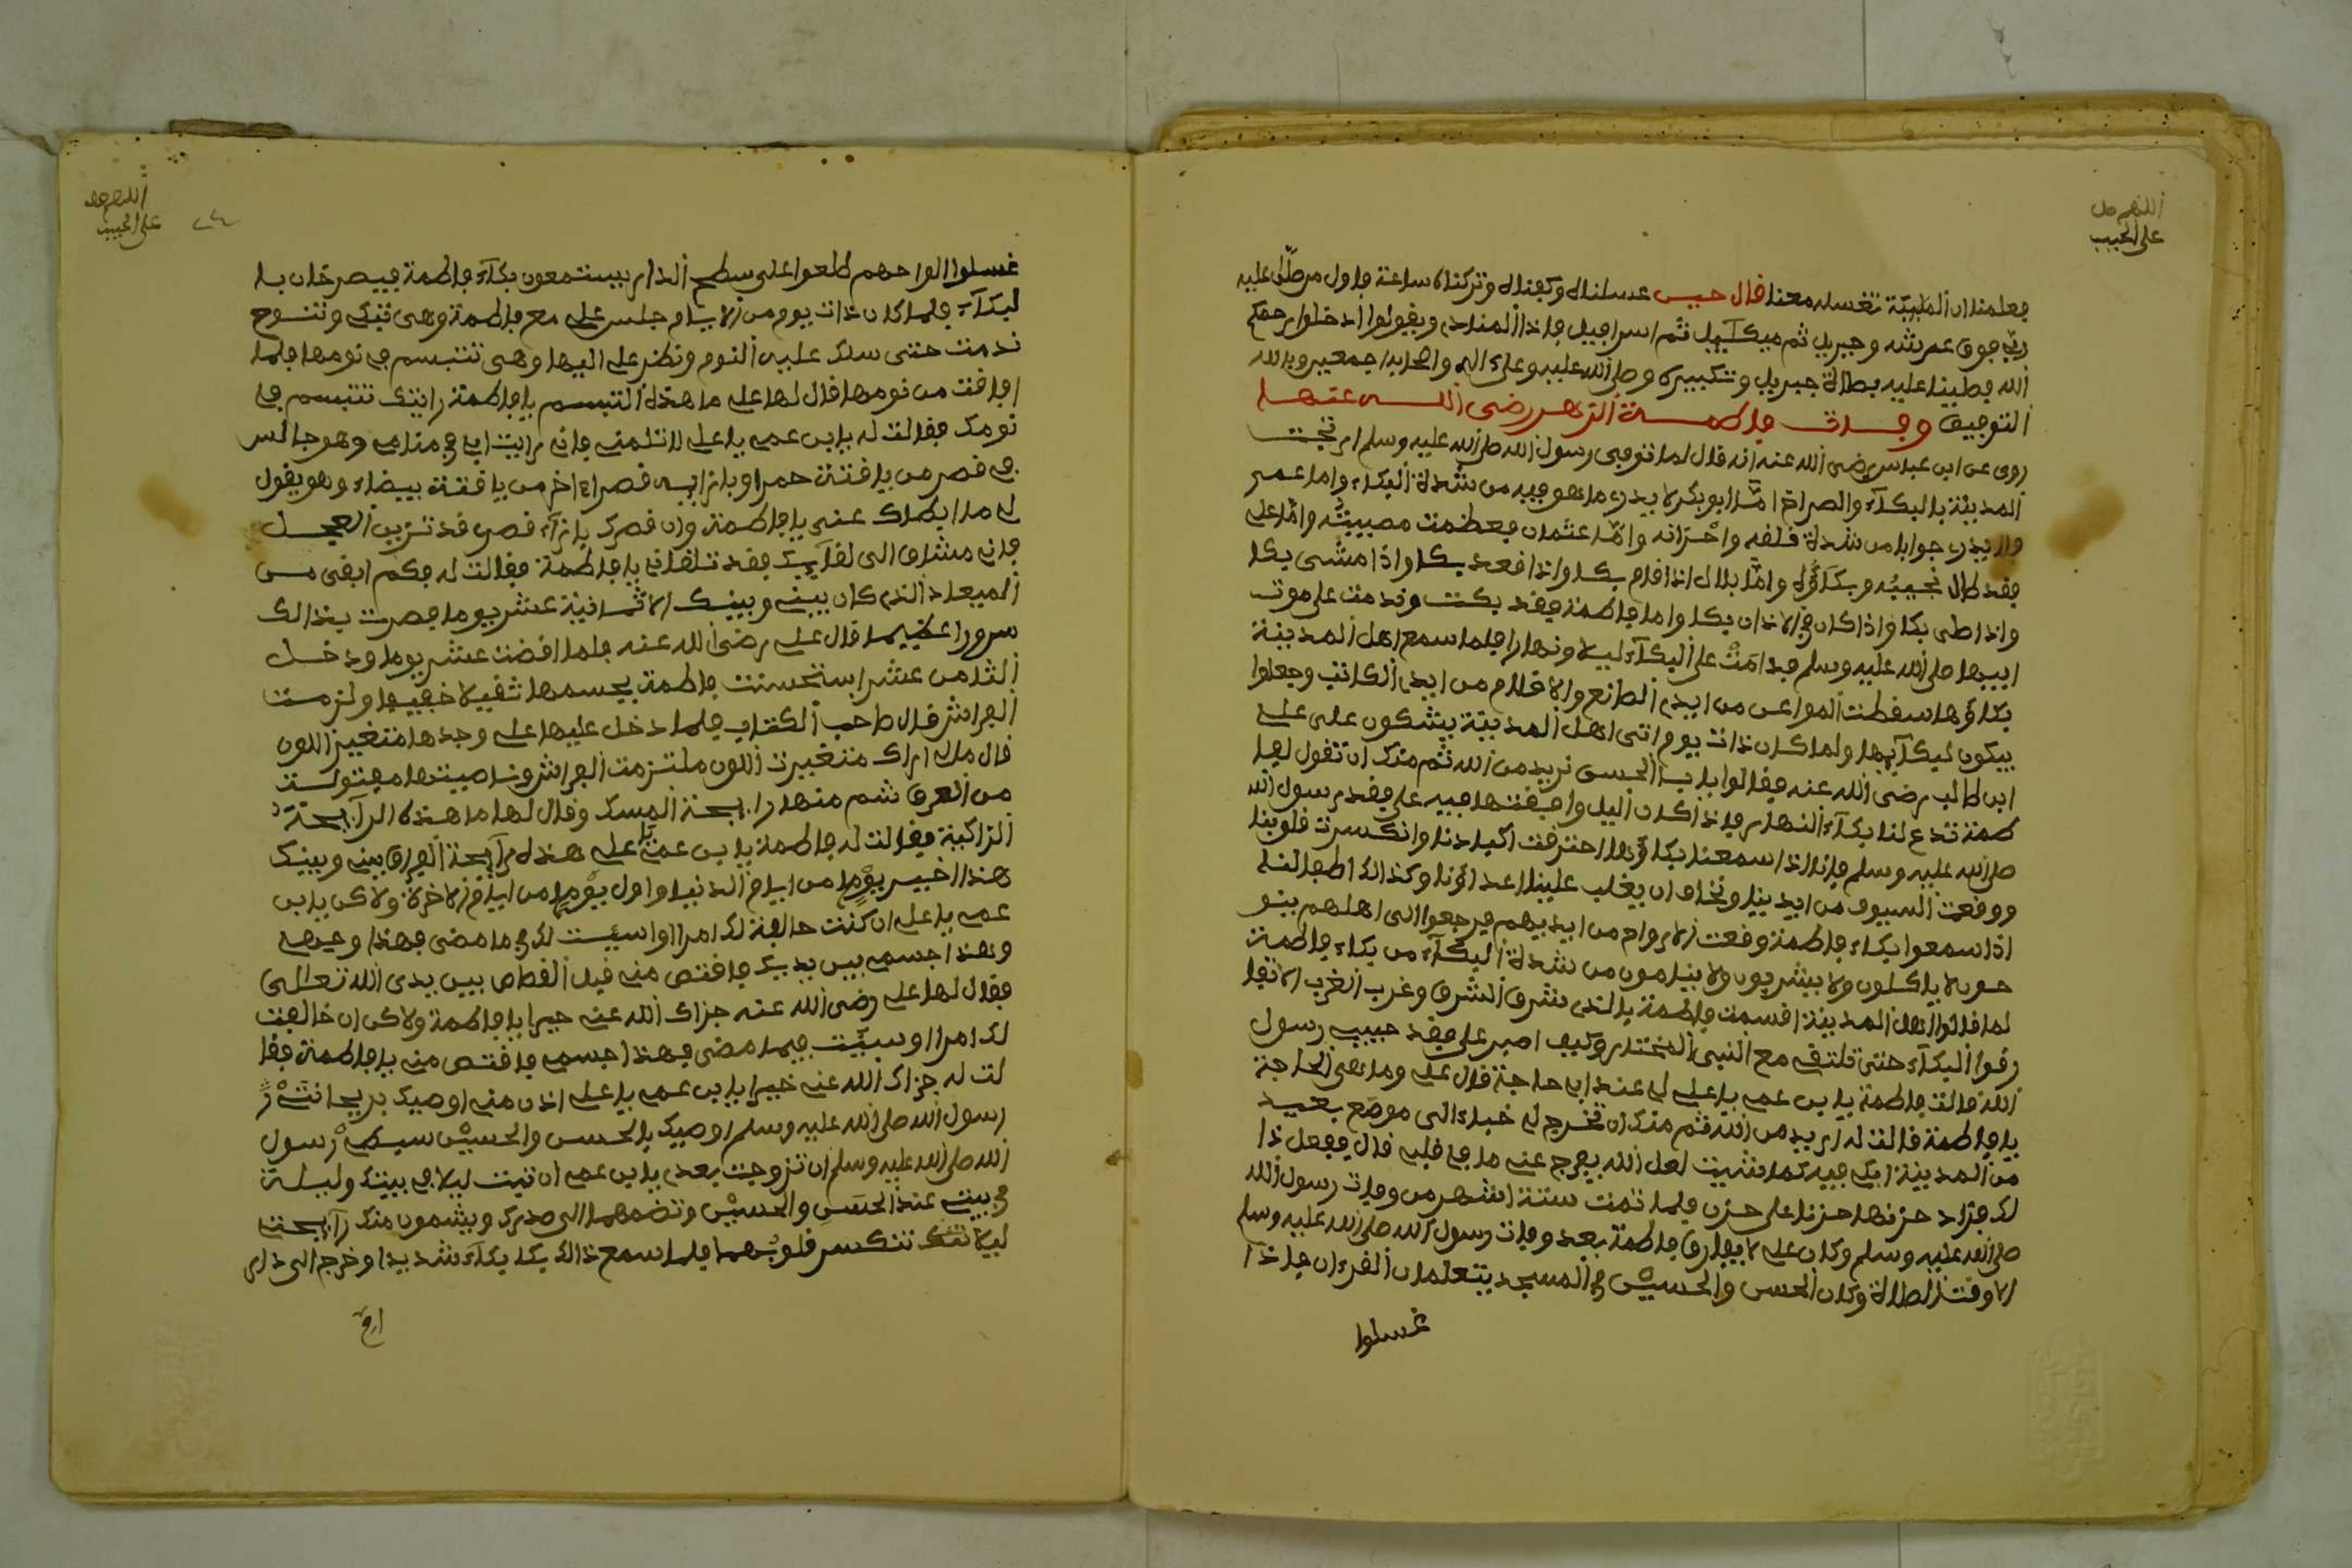 اللهم صل
على الحبيب
فعلمنا ان الملئكة تغسله معنا قال حين غسلناه وكفناه وتركناه ساعة فاول من صلّى عليه
ربي فوق عرشه وجبريل ثم ميكآييل ثم اسرافيل فاذا المنادي ويقولوا ادخلوا يرحمكم
الله فصلينا عليه بصلاة جبريل وتكبيره وصلى الله عليه وعلى اله واصحابه اجمعين وبالله
التوفيق وفات فاطمة الزهر رضى الله عنها
روى عن ابن عباس رضى الله عنه انه قال لما توفى رسول الله صلى الله عليه وسلم ارتجت
المدينة بالبكآء والصراخ امّا ابو بكر لا يدرى ما هو فيه من شدة البكاء واما عمر
ولا يدرى جوابا من شدة قلقه واحزانه وامّا عثمان فعظمت مصيبته وامّا على
فقد طال نحيبه وبكآؤه وامّا بلال اذا قام بكا واذا قعد بكا واذا مشى بكا
واذا صلى بكا واذا كان في الاذان بكا واما فاطمة فقد بكت وندمت على موت
ابيها صلى الله عليه وسلم فدامت على البكآء ليلا ونهارا فلما سمع اهل المدينة
بكاؤها سقطت المواعس من ايدى الصانع والاقلام من ايدى الكاتب وجعلوا
يبكون لبكآيها ولما كان ذات يوم اتى اهل المدينة يشكون على على
ابن طالب رضى الله عنه فقالوا يا ابا الحسن نريد من الله ثم منك ان تقول لفا
طمة تدع لنا بكآء النهار فاذا كان اليل وافقتها فيه على فقد رسول الله
صلى الله عليه وسلم فانا اذا سمعنا بكاؤها احترقت اكبادنا وانكسرت قلوبنا
ووقعت السيوف من ايدينا ونخاف ان يغلب علينا اعداؤنا وكذالك اطفالنا
اذا سمعوا بكاء فاطمة وقعت الارواح من ايديهم فرجعوا الى اهلهم بينو
حون لا ياكلون ولا يشربون ولا ينامون من شدة البكآء من بكاء فاطمة
لما قالوا اهل المدينة اقسمت فاطمة بالذى شرق الشرق وغرب الغرب لا تفا
رقوا البكآء حتى تلتقى مع النبى المختار وكيف اصبر على فقد حبيب رسول
الله قالت فاطمة يا بن عمى يا على لى عندك حاجة قال على وما هى الحاجة
يا فاطمة قالت له اريد من الله ثم منك ان تخرج لى خباء الى موضع بعيد
من المدينة ابكى فيه كما شيت لعل الله يفرج عنى ما في قلبى قال ففعل ذا
لك فزاد حزنها حزنا على حزن فلما تمت ستة اشهر من وفات رسول الله
صلى الله عليه وسلم وكان على لا يفارق فاطمة بعد وفات رسول الله صلى الله عليه وسلم
الا وقت الصلاة وكان الحسن والحسين في المسجد يتعلمان القرءان فاذا
غسلوا
اللهم صل
على الحبيب
غسلوا الواحهم طلعوا على سطح الدار يستمعون بكآء فاطمة فيصرخان با
لبكآء فلما كان ذات يوم من الايام جلس على مع فاطمة وهى تبكى وتنوح
ندمت حتى سلك عليه النوم ونظر على اليها وهى تتبسم في نومها فلما
افاقت من نومها قال لها على ما هذه التبسم يا فاطمة رايتك تتبسم في
نومك فقالت له يا بن عمى يا على لا تلمنى فانى رايت ابى في منامى وهو جالس
في قصر من ياقتة حمرا وبازايه قصراء اخر من ياقتة بيضاء وهو يقول
لى ما ابطاك عنى يا فاطمة وان قصرك بازآء قصرى قد تزين العجل
فانى مشتاق الى لقآيك فقد تلقانى يا فاطمة فقالت له فكم ابقى من
الميعاد الذى كان بينى وبينك الا ثمانية عشر يوما فصرت بذالك
سرورا عظيما قال على رضى الله عنه فلما انقضت عشر يوما ودخل
الثامن عشر استحسنت فاطمة بجسمها ثقيلا خفيفا ولزمت
الفراش قال صاحب الكتاب فلما دخل عليها على وجدها متغيرا اللون
قال مالى اراك متغيرت اللون ملتزمت الفراش وناصيتها مفتولت
من العرق شم منها رايحة المسك وقال لها ما هذه الرآيحة
الزاكية فقالت له فاطمة يا بن عمى يا على هذه رآيحة الفراق بينى وبينك
هذا اخير يوم من ايام الدنيا واول يوم من ايام الاخرة ولاكن يا بن
عمى يا على ان كنت خالفة لك امرا او اسيت لك في ما مضى فهذا وجهى
وهذا جسمى بين يديك فاقتص منى قبل القصاص بين يدى الله تعالى
فقال لها على رضى الله عنه جزاك الله عنى خيرا يا فاطمة ولاكن ان خالفت
لك امرا او سيّت فيما مضى فهذا جسمى فاقتص منى يا فاطمة فقا
لت له جزاك الله عنى خيرا يا بن عمى يا على اذن منى اوصيك بريحانتى
رسول الله صلى الله عليه وسلم اوصيك بالحسن والحسين سبطى رسول
الله صلى الله عليه وسلم ان تزوجت بعدى يا بن عمى ان تبيت ليلا في بيتك وليلة
في بيتى عند الحسن والحسين وتضمهما الى صدرك ويشمون منك رآيحت
ليلا تنكسر قلوبهما فلما سمع ذالك بكا بكآء شديدا وخرج الى دار